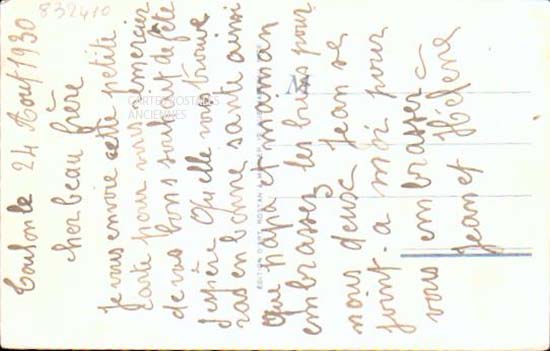 832410
Toulon le 24 Aout 1930
cher beau frère
je vous envoie cette petite
carte pour vous remercier
de vos bons souhait de fête
j'espère Qu'elle vous trouve
ras en bonne santé ainsi
que papa et maman
embrassez les bien pour
nous deux Jean se
joint a moi pour
vous embrasser
Jean et Hélène
CARTES POSTALES
ANCIENNES
M